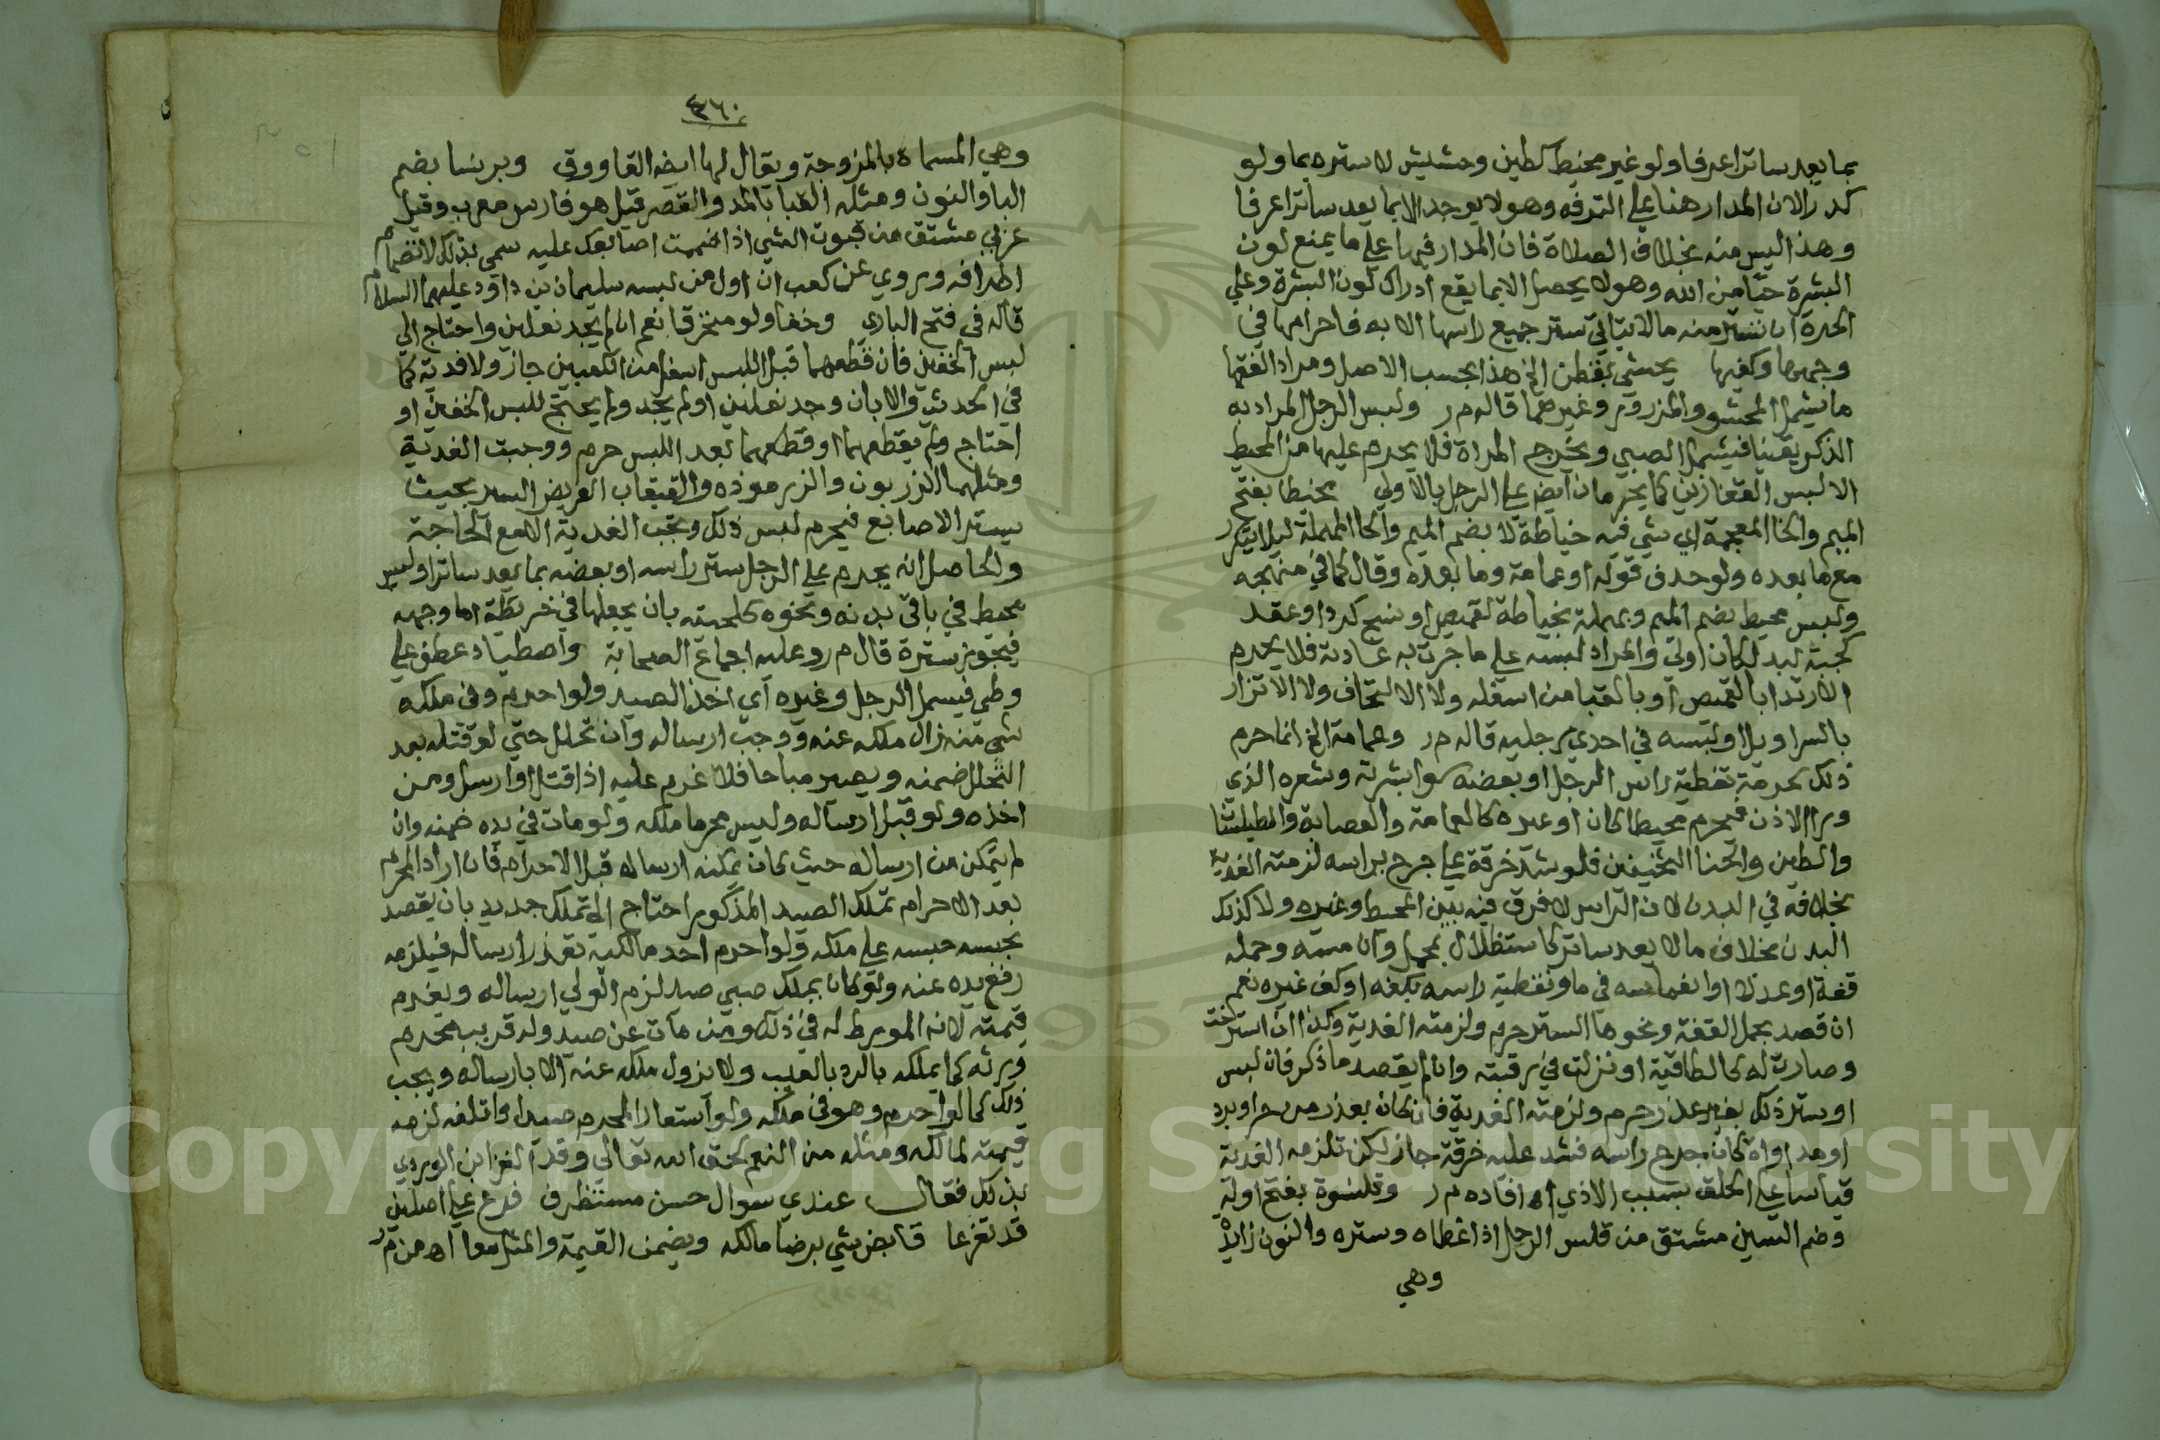 بما يعد ساترا عرفا ولو غير محيط كطين وحشيش لا ستره بما ولو
كدرا لان المدار هنا على الترفه وهو لا يوجد الا بما يعد ساترا عرفا
وهذا ليس منه بخلاف الصلاة فان المدار فيها على ما يمنع لون
البشرة وهو لا يحصل الا بما يقع ادراك لون البشرة وعلى
الحرة ان تستر منه ما لا يتاتى ستر جميع راسها الا به فاحرامها في
وجهها وكفيها يحشى بقطن الخ هذا بحسب الاصل ومراد الفقها
ما يشمل المحشو والمزرور وغيرهما قاله م ر ولبس الرجل المراد به
الذكر يقينا فيشمل الصبي ويخرج المراة فلا يحرم عليها من المحيط
الا لبس القفازين كما يحرمان ايض على الرجل بالاولى مخيطا بفتح
الميم والخا المعجمة اي شي فيه خياطة لا بضم الميم والحا المهملة ليلا يتكرر
مع ما بعده ولو حذف قوله او عمامة وما بعده وقال كما في منهجه
ولبس محيط بضم الميم وبمهملة بخياطة كقميص او نسج كدرا وعقد
كجبة لبد لكان اولى والمراد لبسه على ما جرت به عادته فلا يحرم
الارتدا بالقميص او بالقبا من اسفله ولا الالتحاف ولا الاتزار
بالسراويل او لبسه في احدى رجليه قاله م ر وعمامة الخ انما حرم
ذلك لحرمة تغطية راس الرجل او بعضه سوا بشرته وشعره الذي
ورا الاذن فيحرم محيطا كان او غيره كالعمامة والعصابة والطيلسان
والطين والحنا الثخينين فلو شد خرقة على جرح براسه لزمته الفدية
بخلافه في البدن لان الراس لا فرق فيه بين المحيط وغيره ولا كذلك
البدن بخلاف ما لا يعد ساترا كاستظلال بمحمل وان مسه وحمله
قفة او عدلا او انغماسه في ما وتغطية راسه بكفه او كف غيره نعم
ان قصد بحمل القفة ونحوها الستر حرم ولزمته الفدية وكذا ان استرخت
وصارت له كالطاقية او نزلت في رقبته وان لم يقصد ما ذكر فان لبس
او ستر ذلك بغير عذر حرم ولزمته الفدية فان كان بعذر من حر او برد
او مداواة كان جرح راسه فشد عليه خرقة جاز لكن تلزمه الفدية
قياسا على الحلق بسبب الاذى اه افاده م ر وقلنسوة بفتح اوله
وضم السين مشتق من قلس الرجل اذا غطاه وستره والنون زايدة
وهي
٤٦٠
وهي المسماة بالمزوجة ويقال لها ايضا القاووق وبرنسا بضم
البا والنون ومثله القبا بالمد والقصر قيل هو فارسي معرب وقيل
عربي مشتق من قبوت الشي اذا ضممت اصابعك عليه سمي بذلك لانضمام
اطرافه وروي عن كعب ان اول من لبسه سليمان بن داود عليهما السلام
قاله في فتح الباري وخفا ولو مخرقا نعم ان لم يجد نعلين واحتاج الى
لبس الخفين فان قطعهما قبل اللبس اسفل من الكعبين جاز ولا فدية كما
في الحديث والا بان وجد نعلين او لم يجد ولم يحتج للبس الخفين او
احتاج ولم يقطعهما او قطعهما بعد اللبس حرم ووجبت الفدية
ومثلهما الزربون والزرموذه والقبقاب العريض السير بحيث
يستر الاصابع فيحرم لبس ذلك وتجب الفدية الا مع الحاجة
والحاصل انه يحرم على الرجل ستر راسه او بعضه بما يعد ساترا ولبس
محيط في باقي بدنه ونحوه كلحيته بان يجعلها في خريطة اما وجهه
فيجوز ستره قال م ر وعليه اجماع الصحابة واصطياد عطف على
وطي فيشمل الرجل وغيره اي اخذ الصيد ولو احرم وفي ملكه
شي منه زال ملكه عنه ووجب ارساله وان تحلل حتى لو قتله بعد
التحلل ضمنه ويصير مباحا فلا غرم عليه اذا قتل او ارسل ومن
اخذه ولو قبل ارساله وليس محرما ملكه ولو مات في يده ضمنه وان
لم يتمكن من ارساله حيث كان يمكنه ارساله قبل الاحرام فان اراد المحرم
بعد الاحرام تملك الصيد المذكور احتاج الى تملك جديد بان يقصد
بحبسه حبسه على ملكه ولو احرم احد مالكيه تعذر ارساله فيلزمه
رفع يده عنه ولو كان بملك صبي صيد لزم الولي ارساله ويغرم
قيمته لانه المورط له في ذلك ومن مات عن صيد وله قريب محرم
ورثه كما يملكه بالرد بالعيب ولا يزول ملكه عنه الا بارساله ويجب
ذلك كما لو احرم وهو في ملكه ولو استعار المحرم صيدا واتلفه لزمه
قيمته لمالكه ومثله من النعم لحق الله تعالى وقد الغز ابن الوردي
بذلك فقال عندي سوال حسن مستظرف فرع على اصلين
قد تفرعا قابض شي برضا مالكه ويضمن القيمة والمثل معا اه من م ر